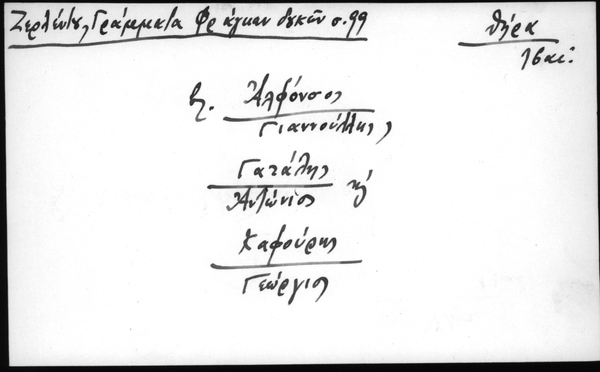 Ζερλέντου, Γράμματα Φράγκων δουκῶν σ. 99
Θήρα
16 αι:
βλ. Ἀλφόνσος
Γιαννούλης,
Γατάλης
Ἀντώνιος κ
Καφούρης
Γεώργιος